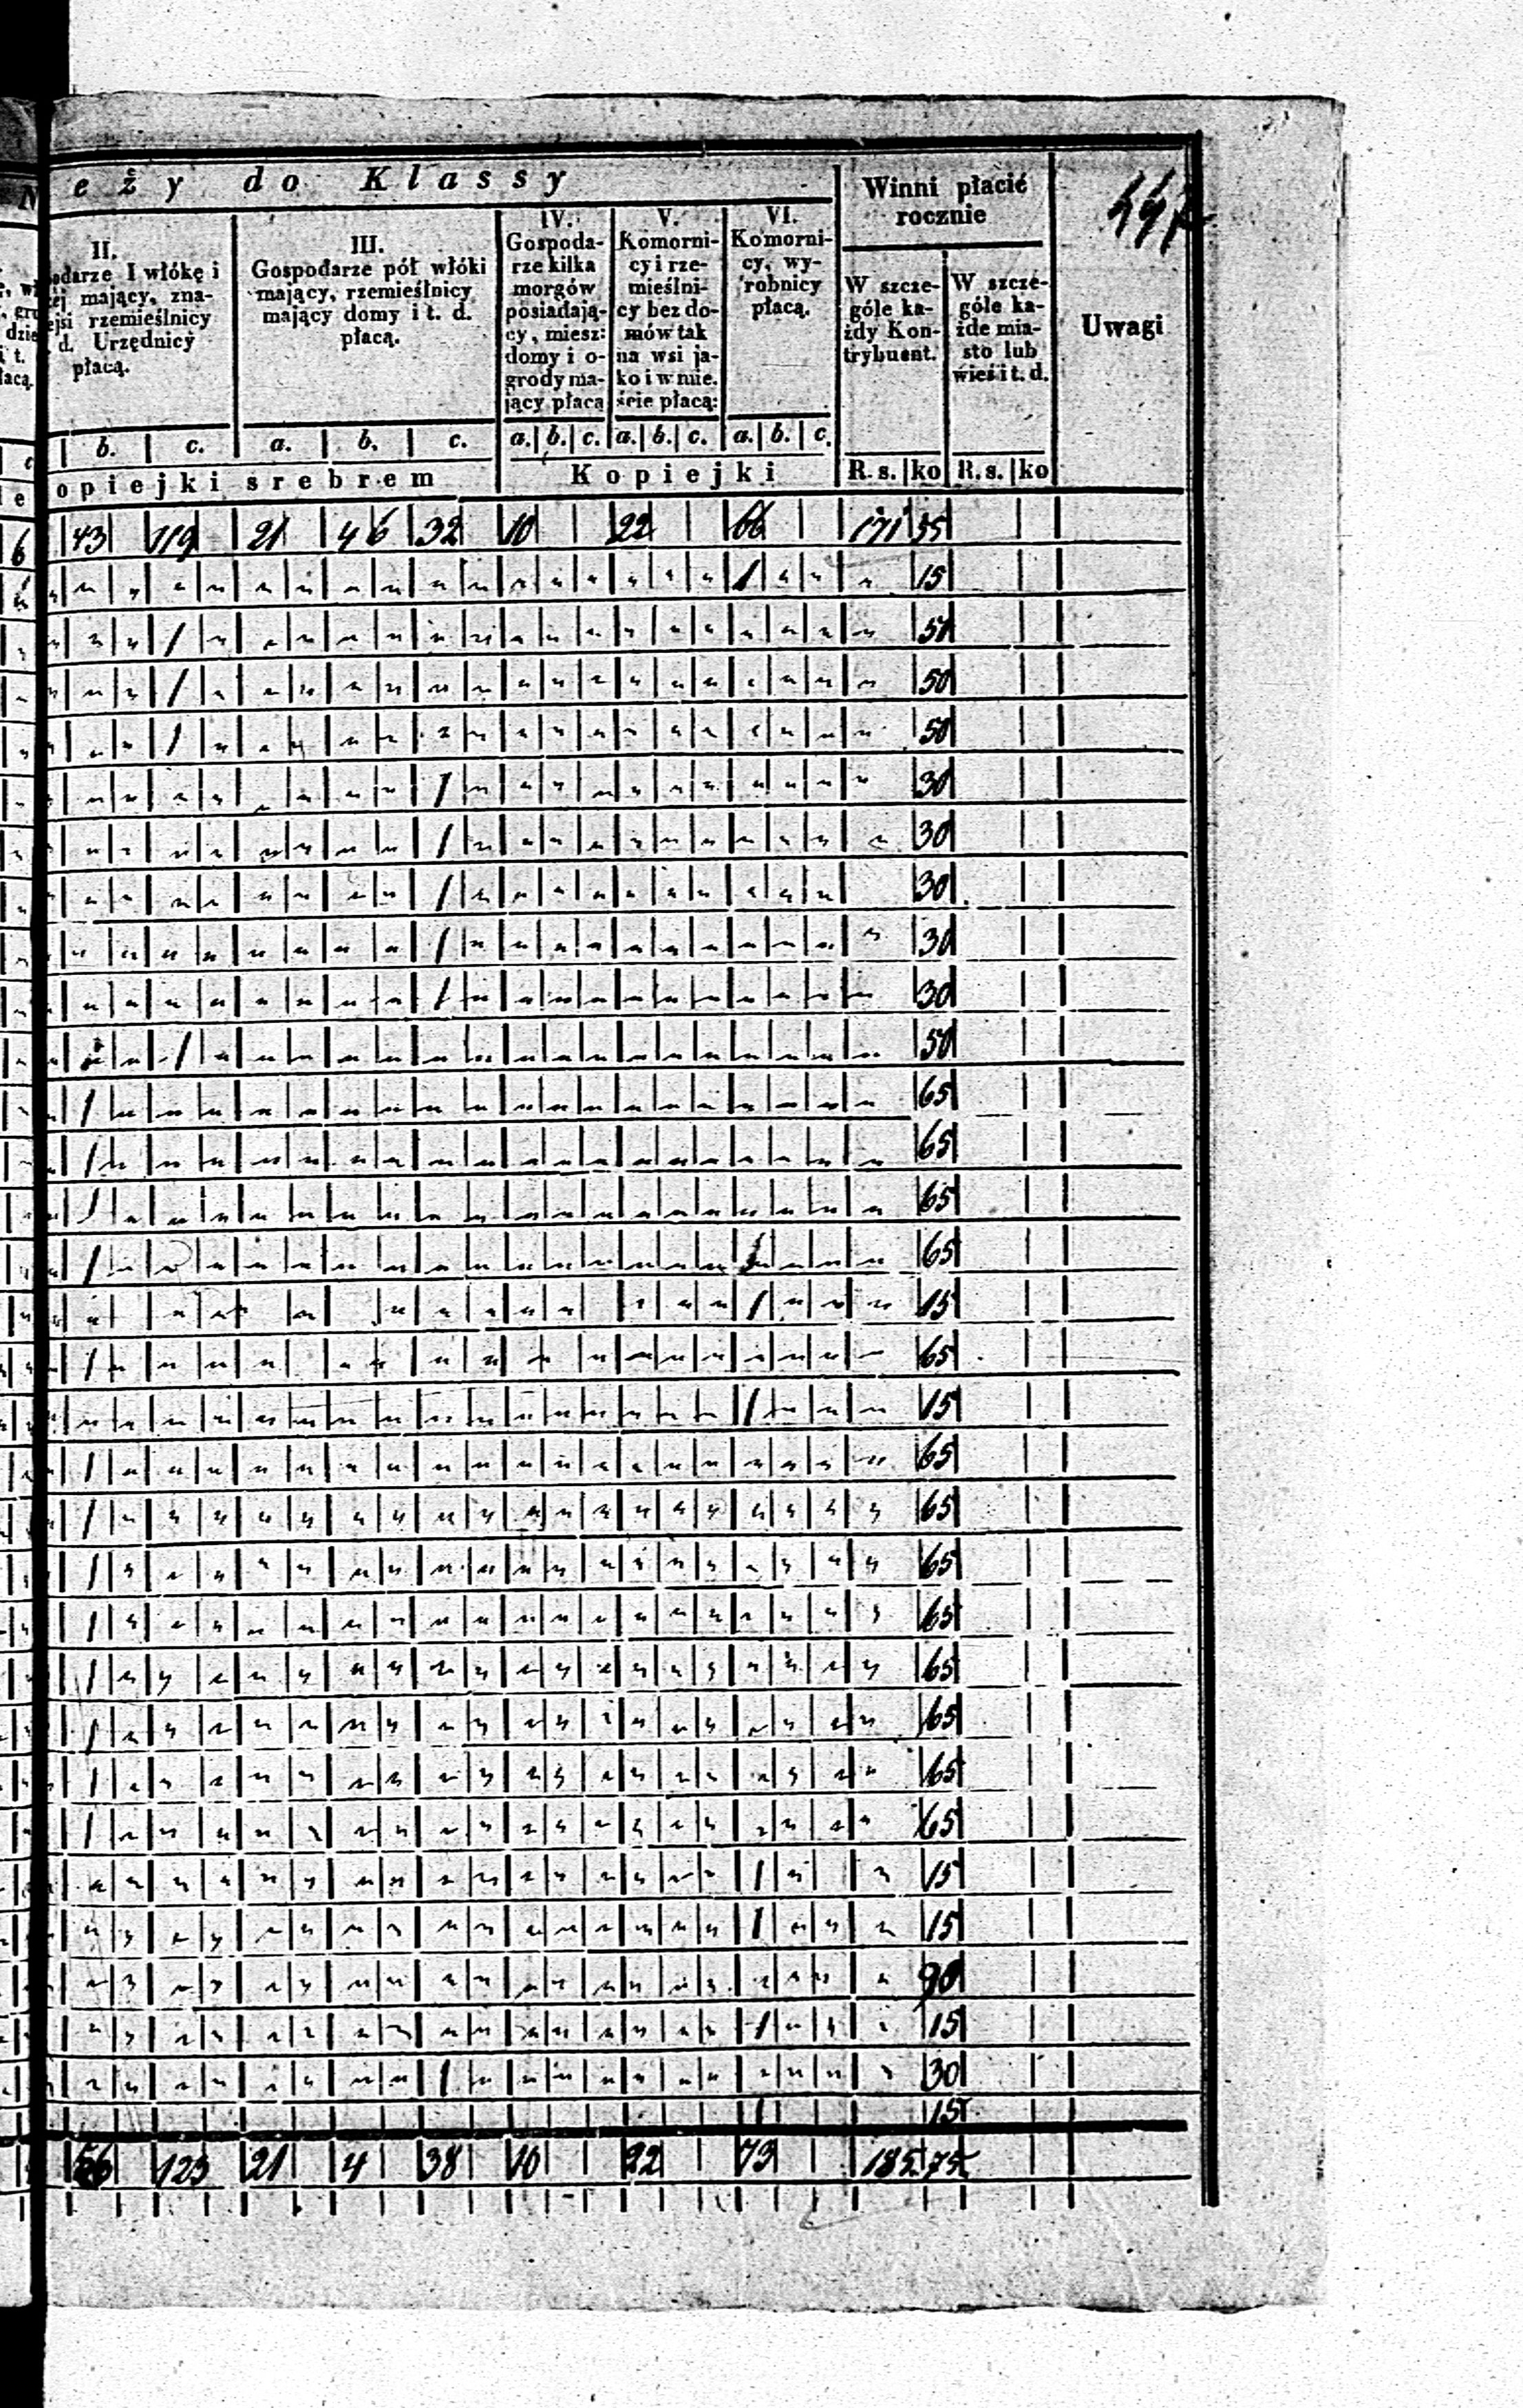 N eży do Klassy
Winni płacić
rocznie
II.
Gospodarze I włókę i
mający, zna-
rzemieślnicy
d. Urzędnicy
płacą.
III.
Gospodarze pół włóki
mający, rzemieślnicy
mający domy i t. d.
płacą.
IV.
Gospoda-
rze kilka
morgów
posiadają-
cy, miesz:
domy i o-
grody ma-
jący płacą
V.
Komorni-
cy i rze-
mieślni-
cy bez do-
mów tak
na wsi ja-
ko i w mie.
ście płacą:
VI.
Komorni-
cy, wy-
robnicy
płacą.
W szcze-
góle ka-
żdy Kon-
trybuent.
W szcze-
góle ka-
żde mia-
sto lub
wieś i t. d.
Uwagi
b. c. a. b. c. a. b. c. a. b. c. a. b. c.
opiejki srebrem Kopiejki R. s. ko R. s. ko
43 119 21 4 6 32 10 22 66 171 35
1 15
1 50
1 50
1 50
1 30
1 30
1 30
1 30
1 30
1 50
1 65
1 65
1 65
1 65
1 15
1 65
1 15
1 65
1 65
1 65
1 65
1 65
1 65
1 65
1 65
1 15
1 15
90
1 15
1 30
1 15
56 123 21 4 38 10 22 73 185 75